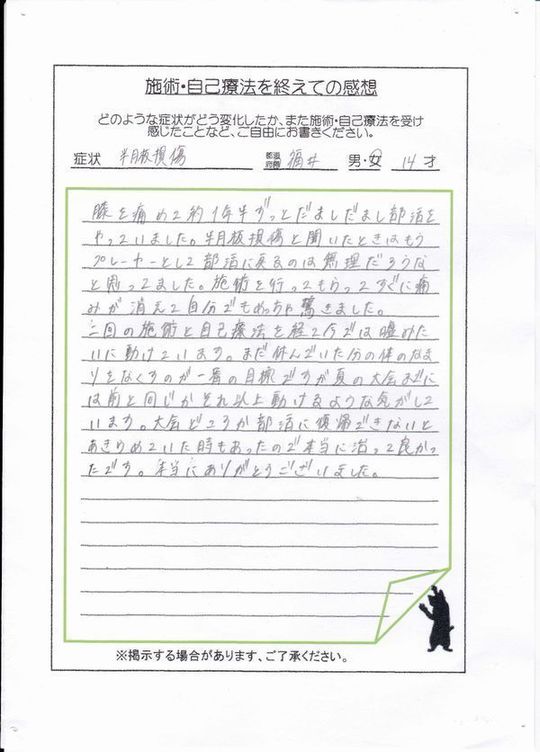 施術・自己療法を終えての感想
どのような症状がどう変化したか、また施術・自己療法を受け
感じたことなど、ご自由にお書きください。
症状 半月板損傷 都道府県 福井 男・女 14才
膝を痛めて約1年半ずっとだましだまし部活を
やっていました。半月板損傷と聞いたときはもう
プレーヤーとして部活に戻るのは無理だろうな
と思ってました。施術を行ってもらってすぐに痛
みが消えて自分でもめっちゃ驚きました。
三回の施術と自己療法を経て今では嘘みた
いに動けています。まだ休んでいた分の体のなま
りをなくすのが一番の目標ですが夏の大会までに
は前と同じかそれ以上動けるような気がして
います。大会どころか部活に復帰できないと
あきらめていた時もあったので本当に治って良かっ
たです。本当にありがとうございました。
※掲示する場合があります、ご了承ください。